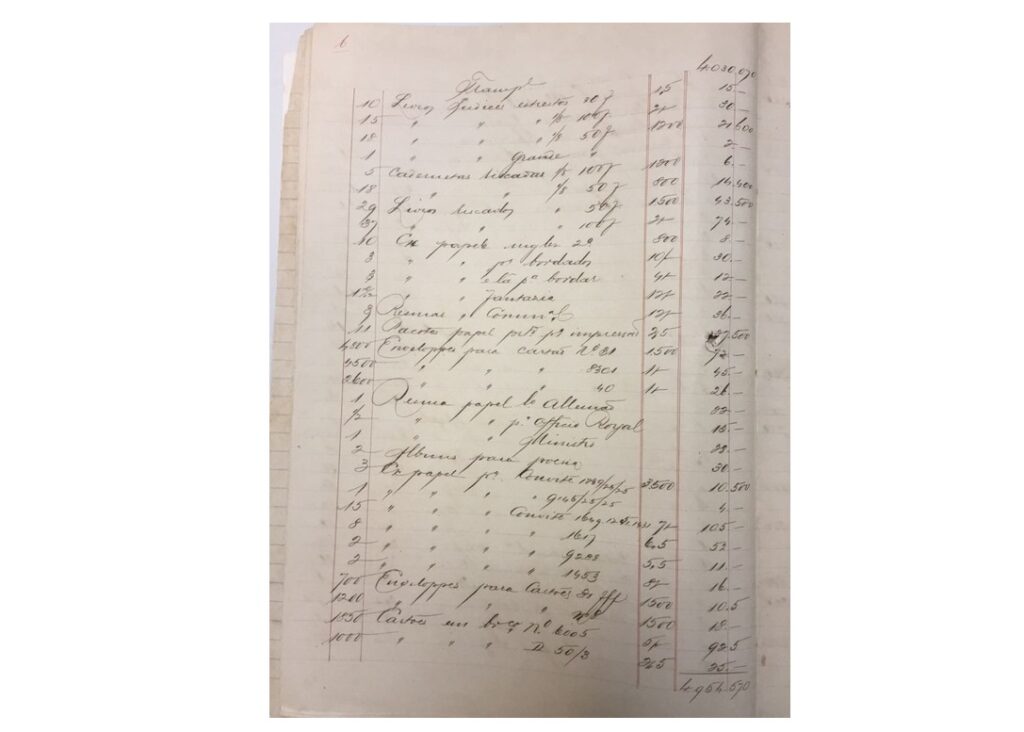 6
4.030.070
Transpe
10 Livros Indices estreitos 20 f 1,5 15.—
15 " " " 1/8 100 f 2 30.—
18 " " " 1/8 50 f 1200 21.600
1 " " Grande " 2.—
5 Cadernetas riscadas 1/8 100 f 1200 6.—
18 " " 1/8 50 f 800 14.400
29 Livros riscados " 50 f 1500 43.500
37 " " " 100 f 2 74.—
10 Cx papel 2ª 800 8.—
3 " " pª bordados 10 30.—
3 " " pª bordar 4 12.—
" " fantazia 22.—
3 Resmas " Commal 12 36.—
11 Pacotes papel preto pª impressos 2,5 27.500
4800 Enveloppes para cartas Nº 31 1.500 72.—
4500 " " " 8301 1 45.—
2600 " " " 40 1 26.—
1 Resma papel Allemão 22.—
1/2 " " pª Officio Royal 15.—
1 " " " Ministro 23.—
2 Albuns para poesia 30.—
3 Cx papel pª Convite /25/25 3.500 10.500
1 " " " " 9145/25/25 4.—
15 " " " Convite 1649 7 105.—
8 " " " " 1617 6,5 52.—
2 " " " " 9283 5,5 11.—
2 " " " " 1453 8 16.—
700 Enveloppes para Cartões 1500 10.5
1200 " " " nº 8 1500 18.—
1850 Cartões em nº 6005 5 92.5
1000 " " " D 50/3 25.—
4.954.570